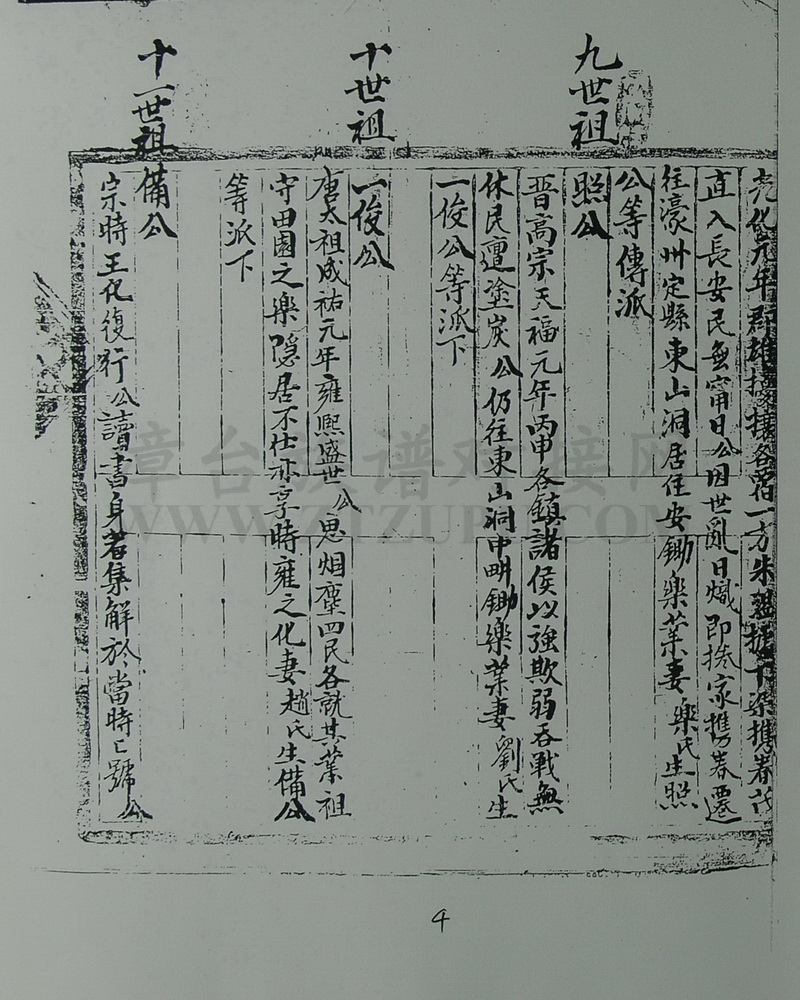 光化元年群雄擾攘各霸一方朱溫據下梁攜眷
直入長安民無甯日公因世亂日熾即捲家攜眷遷
往濠州定縣東山洞居住安鋤樂業妻樂氏生照
公等傳派
九世祖
照公
晉高宗天福元年丙申各鎮諸侯以強欺弱吞戰無
休民遭塗炭公仍往東山洞中畊鋤樂業妻劉氏生
一俊公等派下
十世祖
一俊公
唐太祖成祐元年雍熙盛世公思烟塵四民各就其業祖
守田園之樂隱居不仕亦享時雍之化妻趙氏生備公
等派下
十一世祖
備公
宗時王化復行公讀書身著集解於當時已號公
章台族谱对接网
WWW.ZTZUPU.COM
4